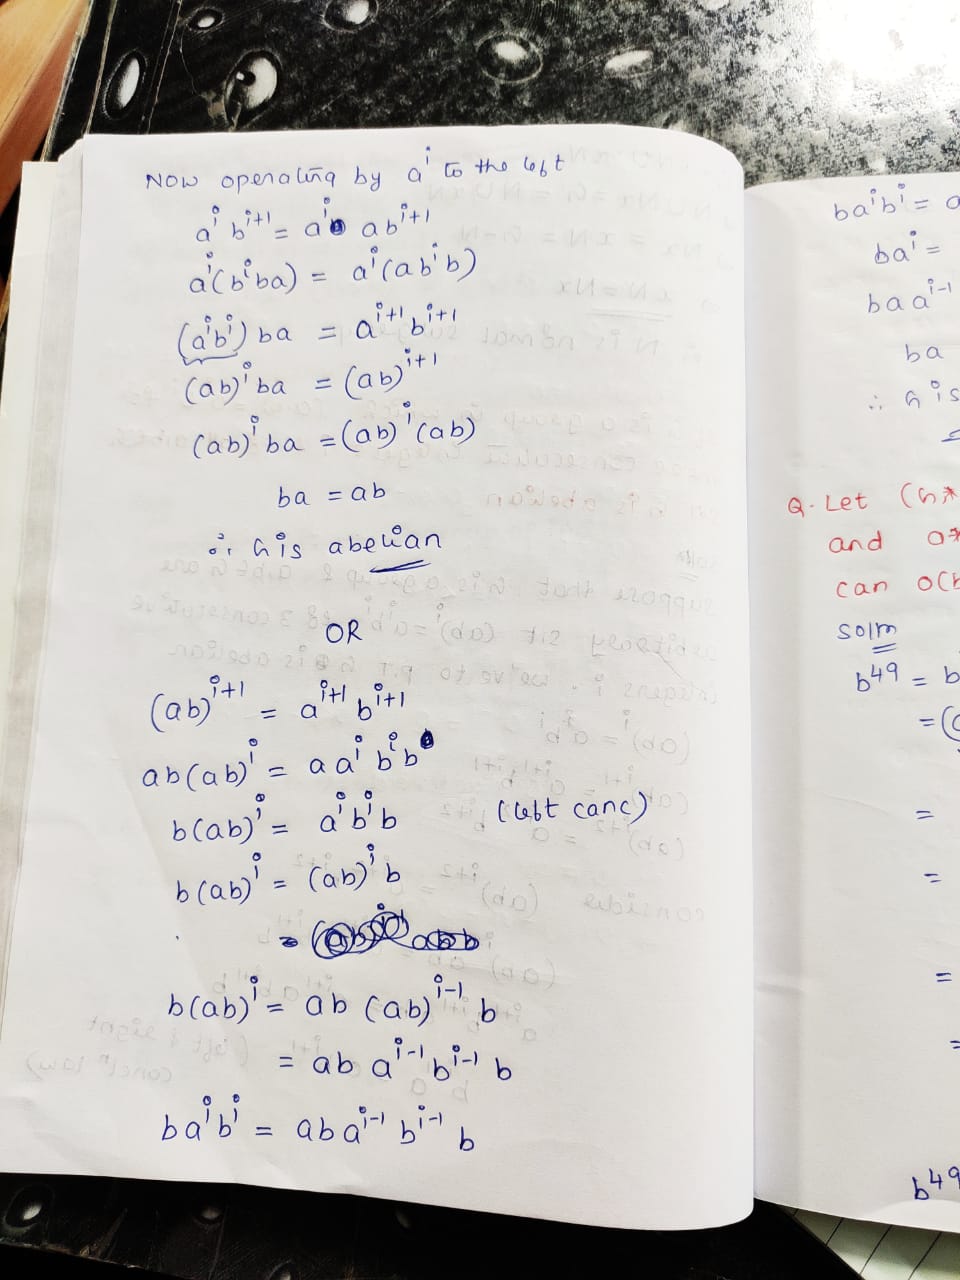 Now operating by a^i to the left
a^i b^{i+1} = a^i ab^{i+1}
a^i(b^i ba) = a^i(ab^i b)
(a^i b^i) ba = a^{i+1} b^{i+1}
(ab)^i ba = (ab)^{i+1}
(ab)^i ba = (ab)^i (ab)
ba = ab
∴ G is abelian
OR
(ab)^{i+1} = a^{i+1} b^{i+1}
ab(ab)^i = a a^i b^i b
b(ab)^i = a^i b^i b (left canc)
b(ab)^i = (ab)^i b
b(ab)^i = ab (ab)^{i-1} b
= ab a^{i-1} b^{i-1} b
ba^i b^i = aba^{i-1} b^{i-1} b
ba^i b^i = a
ba^i =
baa^{i-1}
ba
∴ G is
Q. Let (G*
and a*
can o(b
soln
b^49 = b
= (
=
=
=
=
b^49